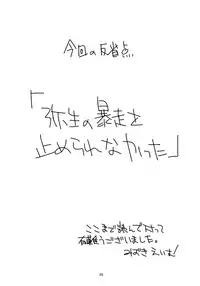 今回の反省点
「弥生の暴走を
止められなかった」
ここまで読んで下さって
有難うございました。
こばき えいま!